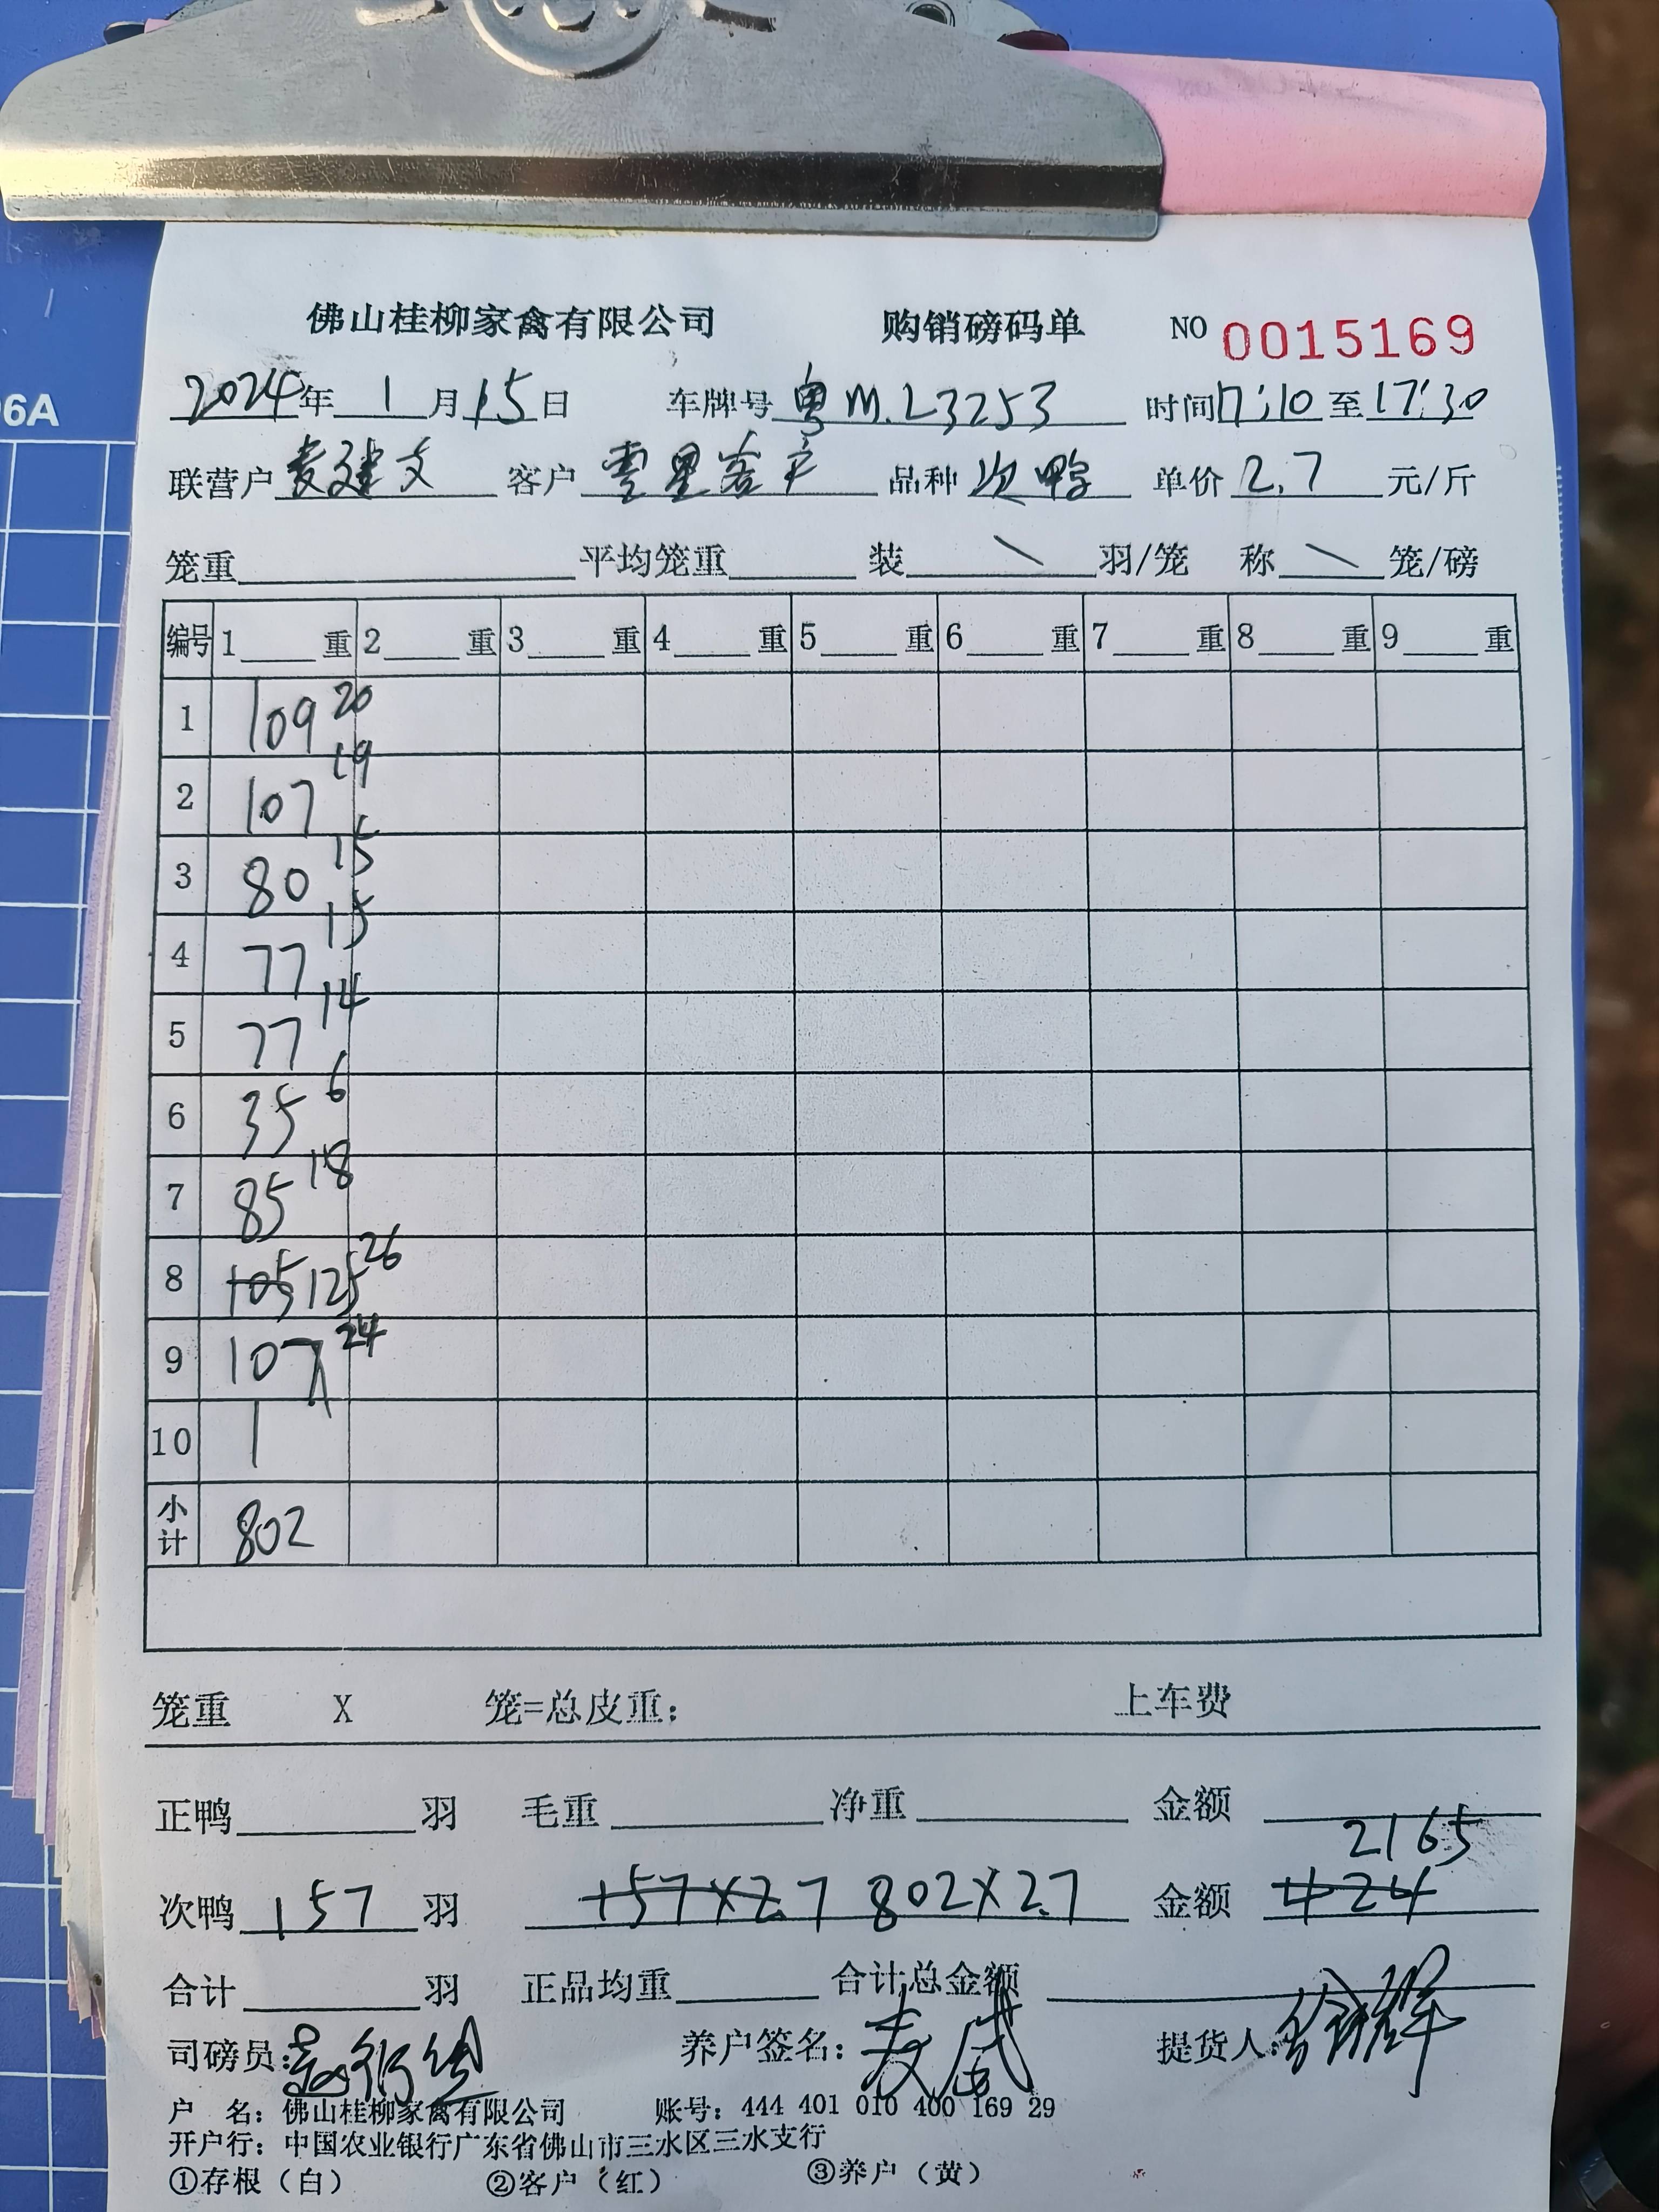 06A
佛山桂柳家禽有限公司 购销磅码单 NO 0015169
2024年 1 月 15 日 车牌号 粤M.L3253 时间 17:10 至 17:30
联营户 麦建文 客户 零星客户 品种 次鸭 单价 2.7 元/斤
笼重 平均笼重 装 \ 羽/笼 称 \ 笼/磅
编号 1 重 2 重 3 重 4 重 5 重 6 重 7 重 8 重 9 重
1 109 20
2 107 19
3 80 15
4 77 15
5 77 14
6 35 6
7 85 18
8 105 125 26
9 107 24
10
小计 802
笼重 X 笼=总皮重: 上车费
正鸭 羽 毛重 净重 金额
2165
次鸭 157 羽 157×2.7 802×2.7 金额 424
合计 羽 正品均重 合计总金额
司磅员: 养户签名: 提货人:
户 名: 佛山桂柳家禽有限公司 账号: 444 401 010 400 169 29
开户行: 中国农业银行广东省佛山市三水区三水支行
①存根(白) ②客户(红) ③养户(黄)